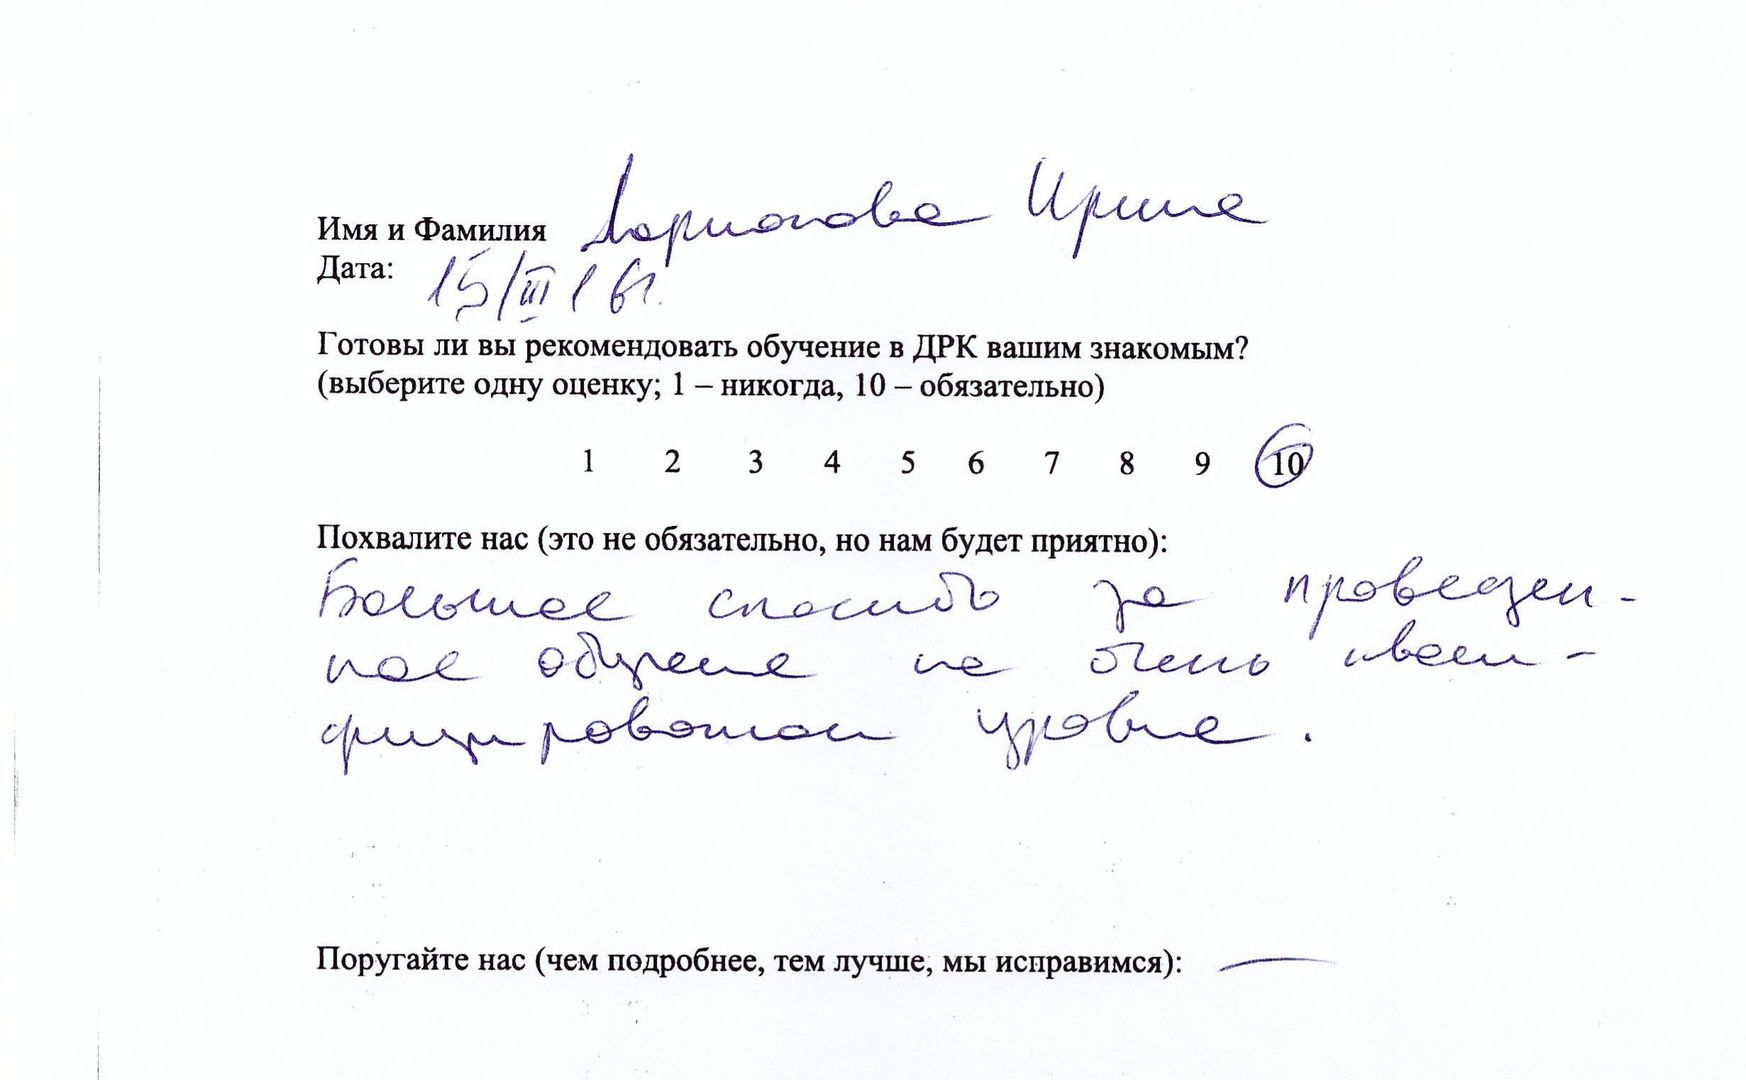 Имя и Фамилия Ларионова Ирина
Дата: 15/III 16г.
Готовы ли вы рекомендовать обучение в ДРК вашим знакомым?
(выберите одну оценку; 1 – никогда, 10 – обязательно)
1 2 3 4 5 6 7 8 9 10
Похвалите нас (это не обязательно, но нам будет приятно):
Большое спасибо за проведен-
ное обучение на очень квали-
фицированном уровне.
Поругайте нас (чем подробнее, тем лучше, мы исправимся): —